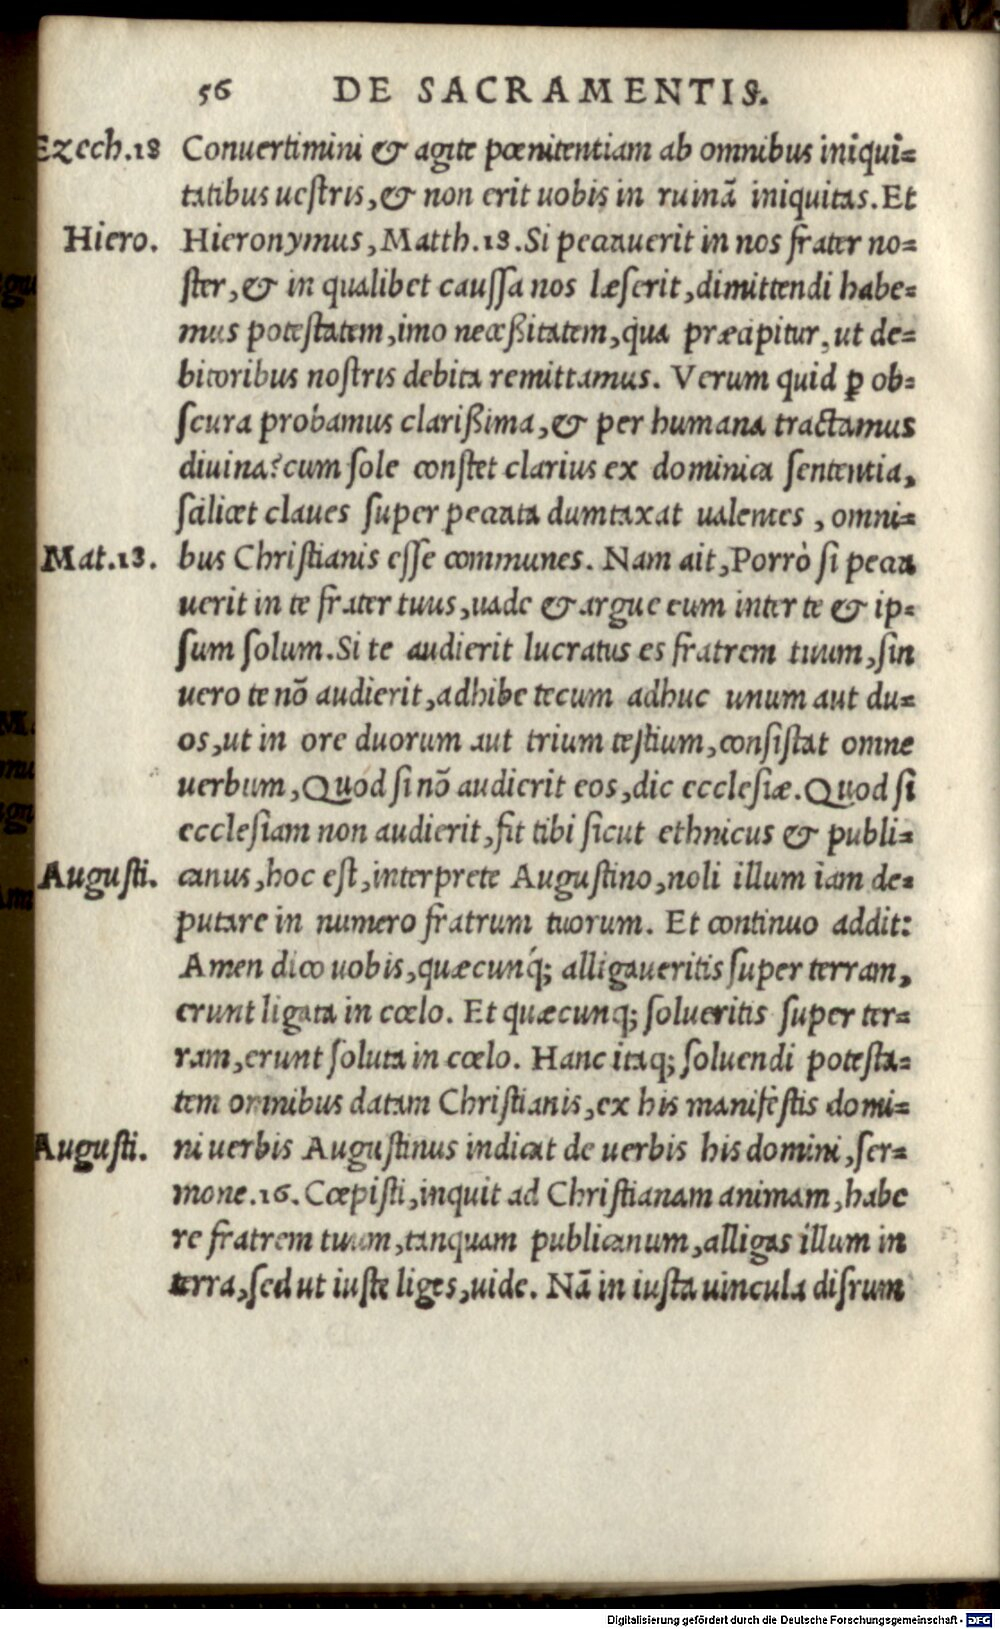 56 DE SACRAMENTIS.
Ezech.18 Conuertimini & agite pœnitentiam ab omnibus iniqui=
tatibus uestris,& non erit uobis in ruinā iniquitas.Et
Hiero. Hieronymus,Matth.18.Si peccauerit in nos frater no=
ster,& in qualibet caussa nos læserit,dimittendi habe=
mus potestatem,imo neceßitatem,qua præcipitur,ut de=
bitoribus nostris debita remittamus. Verum quid ꝑ ob=
scura probamus clarißima,& per humana tractamus
diuina?cum sole constet clarius ex dominica sententia,
scilicet claues super peccata dumtaxat ualentes , omni=
Mat.13. bus Christianis esse communes. Nam ait,Porrò si pecca
uerit in te frater tuus,uade & argue eum inter te & ip=
sum solum.Si te audierit lucratus es fratrem tuum,sin
uero te nō audierit,adhibe tecum adhuc unum aut du=
os,ut in ore duorum aut trium testium,consistat omne
uerbum,Quod si nō audierit eos,dic ecclesiæ.Quod si
ecclesiam non audierit,sit tibi sicut ethnicus & publi=
Augusti. canus,hoc est,interprete Augustino,noli illum iam de=
putare in numero fratrum tuorum. Et continuo addit:
Amen dico uobis,quæcunq́; alligaueritis super terram,
erunt ligata in cœlo. Et quæcunq; solueritis super ter=
ram,erunt soluta in cœlo. Hanc itaq; soluendi potesta=
tem omnibus datam Christianis,ex his manifestis domi=
Augusti. ni uerbis Augustinus indicat de uerbis his domini,ser=
mone.16. Cœpisti,inquit ad Christianam animam,habe
re fratrem tuum,tanquam publicanum,alligas illum in
terra,sed ut iuste liges,uide. Nā in iusta uincula disrum
Digitalisierung gefördert durch die Deutsche Forschungsgemeinschaft - DFG